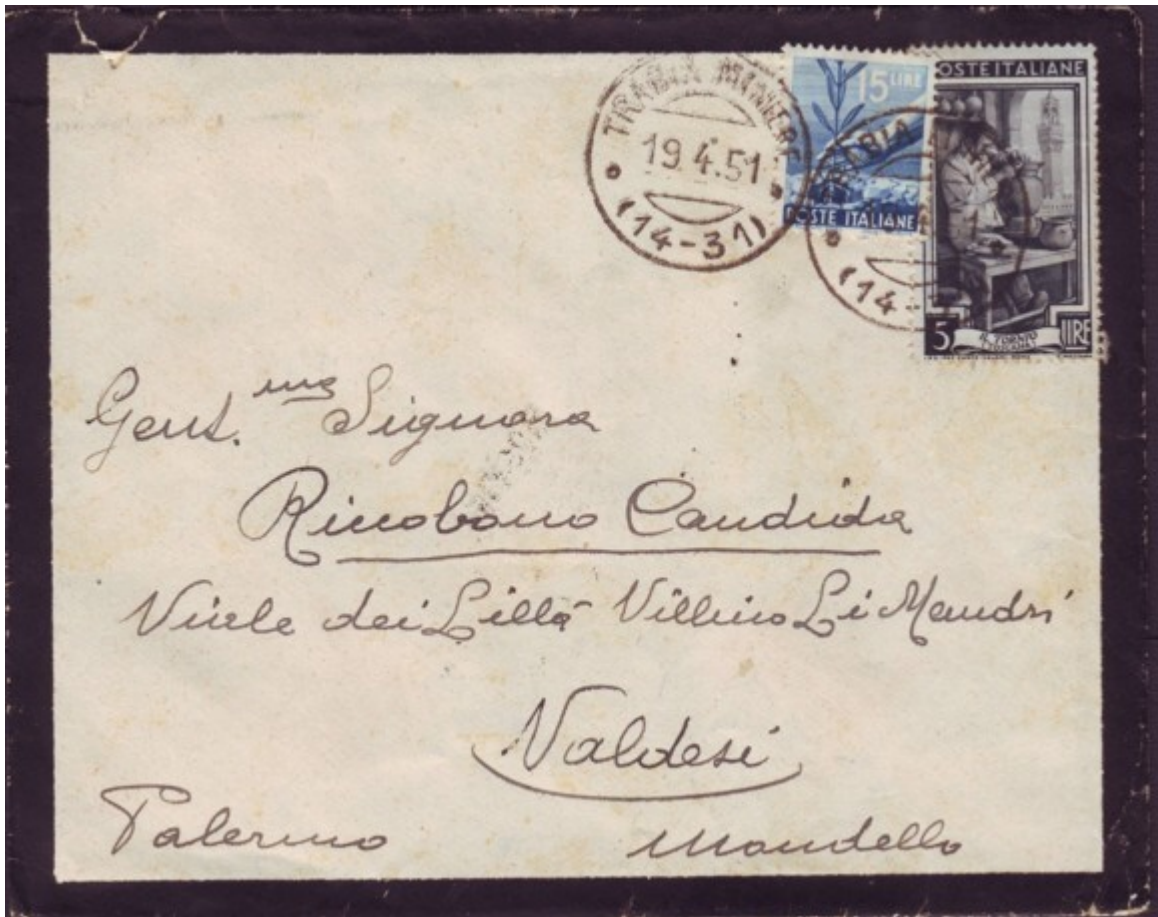 TRABIA MINIERE
19.4.51
(14-31)
15 LIRE
POSTE ITALIANE
TRABIA
(14-
POSTE ITALIANE
5 LIRE
IL TORNIO
Gent.ma Signora
Riccobono Candida
Viale dei Lillà Villino Li Mandri
Valdesi
Palermo Mondello